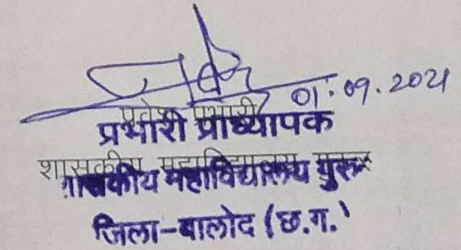 01.09.2021
प्रवेश प्रभारी
प्रभारी प्राध्यापक
शासकीय महाविद्यालय गुरूर
शासकीय महाविद्यालय गुरूर
जिला-बालोद (छ.ग.)